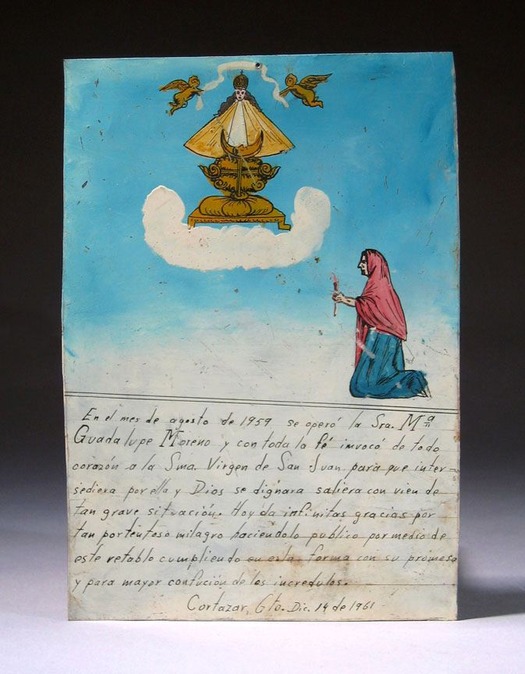 En el mes de agosto de 1959 se operó la Sra. Mª
Guadalupe Moreno y con toda la fé invocó de todo
corazón a la Sma. Virgen de San Juan para que inter-
sediera por ella y Dios se dignara saliera con vien de
tan grave situación. Hoy da infinitas gracias por
tan portentoso milagro haciendolo publico por medio de
este retablo cumpliendo en esta forma con su promesa
y para mayor confución de los incredulos.
Cortazar, Gto. Dic. 14 de 1961